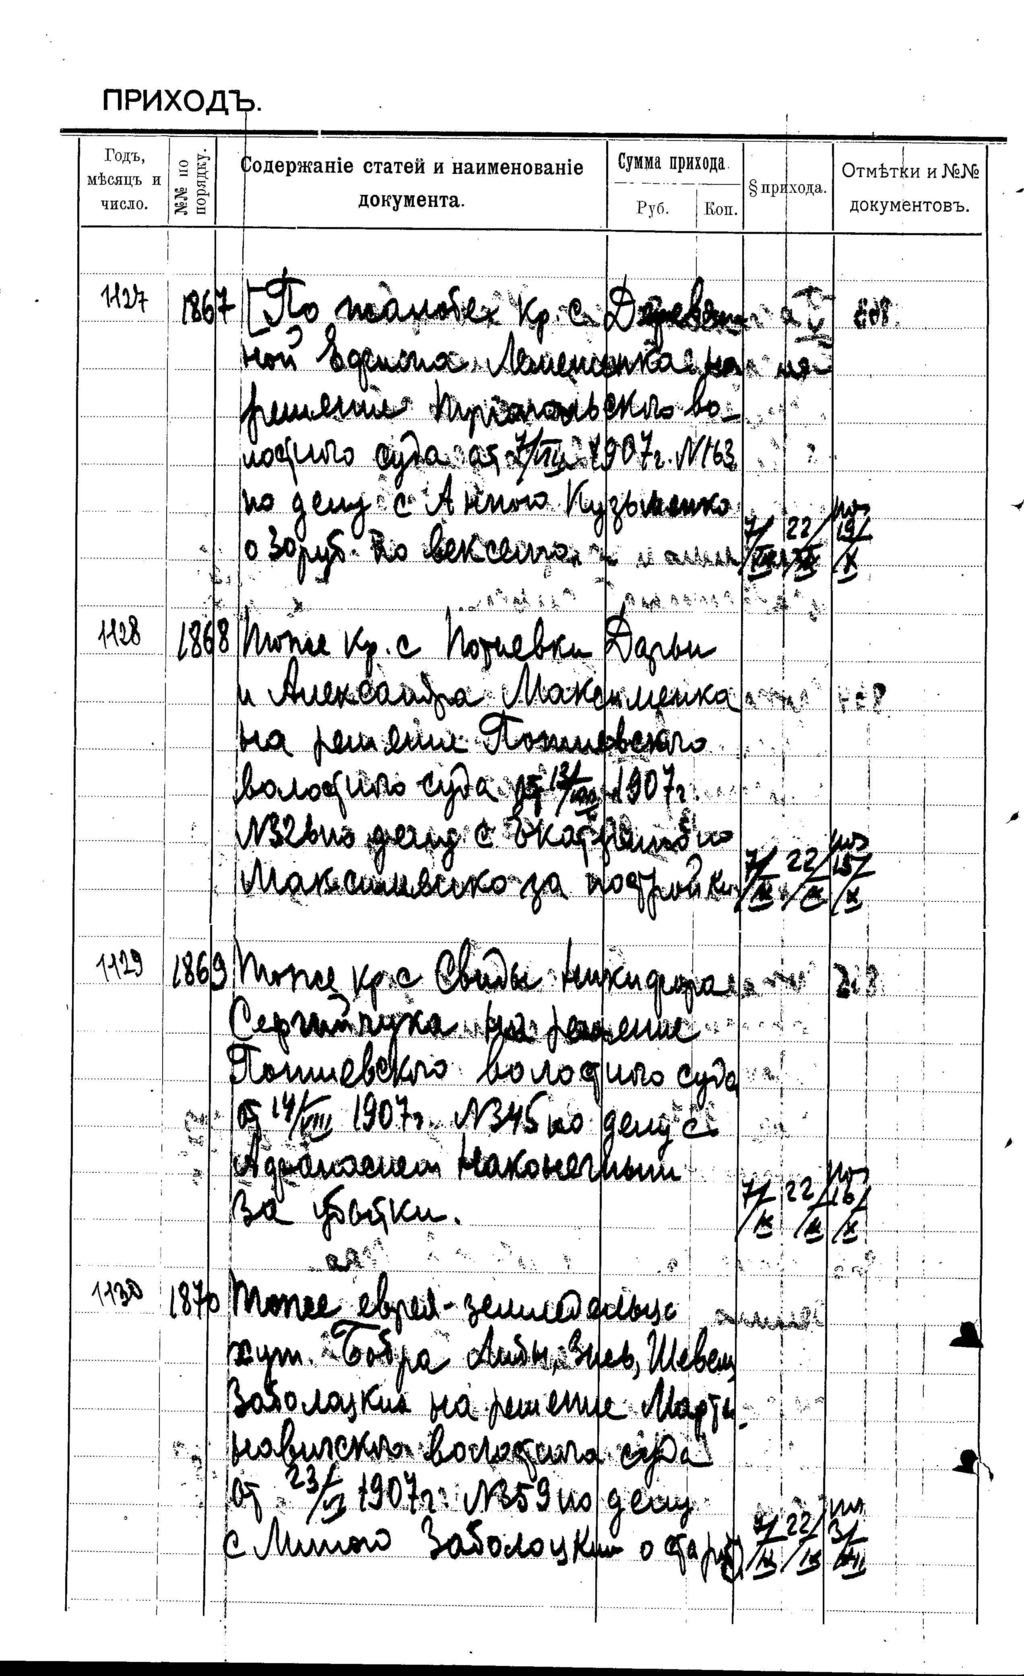 ПРИХОДЪ.
Годъ, мѣсяцъ и число.
№№ по порядку.
Содержаніе статей и наименованіе документа.
Сумма прихода.
Руб. Коп.
§ прихода.
Отмѣтки и №№ документовъ.
1127 1867 По жалобѣ кр. с. Деревян-
ной Лемешенка на
решение волостного
волостного суда от 7/VIII 1907 г. №163
по делу с Анною Кузьменко
о 30 руб. по векселю 7/ 22/ 19/X
1128 1868 Тоже кр. с Потиевки Дарьи
и Александра Максименка
на решение Потиевского
волостного суда от 13/VIII 1907 г.
№326 по делу с Екатериною
Максименко за постройки 7/IX 22/IX 15/X
1129 1869 Тоже кр с Свиды Никифора
Сергийчука на решение
Потиевского волостного суда
от 14/VIII 1907 г. №345 по делу с
Афанасием Наконечным
за убытки. 7/IX 22/IX 16/X
1130 1870 Тоже еврея-земледельца
хут. Бобра Либы, Зись, Шевель
Заболоцких на решение Марты-
новичского волостного суда
от 23/VI 1907 г. №359 по делу
с Минею Заболоцким о 22/IX